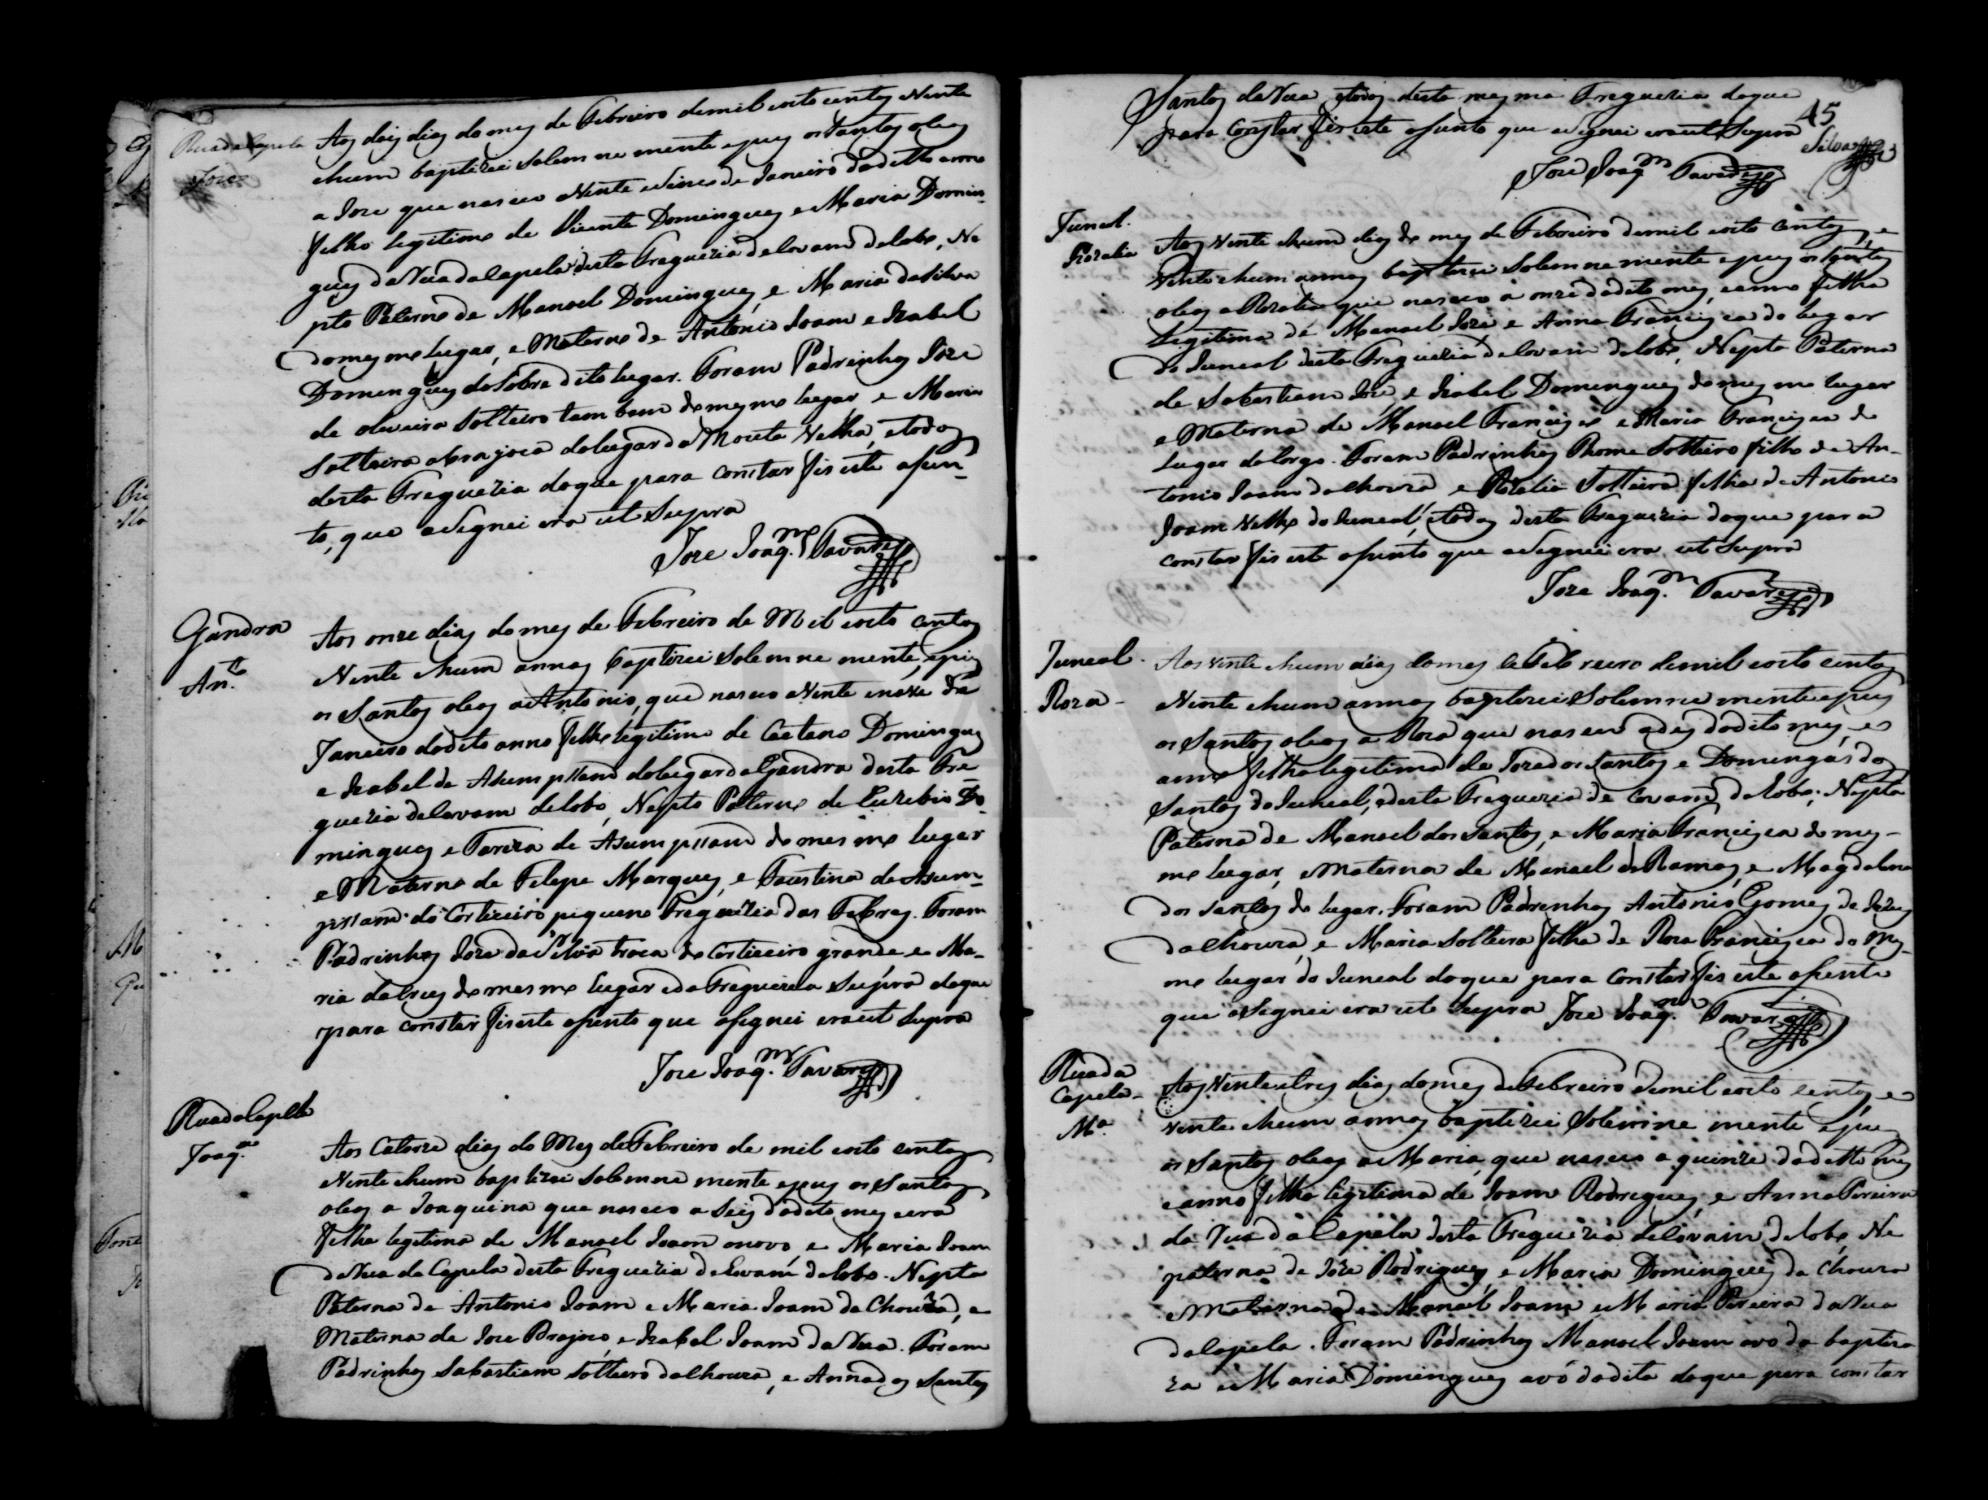 Rua da Capela
Joze
Aos dois dias do mes de Febreiro de mil oito centos e Vinte
e hum baptizei Solemne mente e pus os Santos oleos
a Joze que nasceo a Vinte e Sinco de Janeiro do ditto anno
filho legitimo de Vicente Domingues e Maria Domin-
gues da Rua da Capela desta Freguezia de Covam do Lobo, Ne
pto Paterno de Manoel Domingues, e Maria da Silva
do mesmo lugar, e Materno de Antonio Joam e Izabel
Domingues do Sobre dito lugar. Foram Padrinhos Joze
de oliveira Solteiro tam bem do mesmo lugar e Maria
Solteira a brajoca do lugar da Moita Velha, e todos
desta Freguezia do que para constar fis este asen-
to, que a Signei era ut Supra
Joze Joaq.m Tavares
Gandra
An.to
Aos onze dias do mes de Febreiro de Mil e oito centos
Vinte e hum annos baptizei Solemne mente, e pus
os Santos oleos a Antonio, que nasceo a Vinte e nove de
Janeiro do dito anno filho legitimo de Caetano Domingues
e Izabel de Asumpssam do lugar da Gandra desta Fre
guezia de Covam do Lobo, Nepto Paterno de Euzebio Do
mingues e Tereza de Asumpssam do mesmo lugar
e Materno de Felipe Marques, e Faustina de Asum-
pssam do Cortiçeiro piqueno Freguezia das Febres. Foram
Padrinhos Joze da Silva troca do Cortiçeiro grande e Ma-
ria de Jezus do mesmo lugar e da Freguezia Supra do que
para constar fis este asento que asignei era ut Supra
Joze Joaq.m Tavares
Rua da Capela
Joaq.na
Aos Catorze dias do Mes de Febreiro de mil oito centos
Vinte e hum baptizei Solemne mente e pus os Santos
oleos a Joaquina que nasceo a Seis do dito mes e era
filha legitima de Manoel Joam o novo e Maria Joam
da Rua da Capela desta Freguezia de Covam do Lobo. Nepta
Paterna de Antonio Joam e Maria Joam da Chouza, e
Materna de Joze Brajoco, e Izabel Joam da Rua. Foram
Padrinhos Sabastiam Solteiro da Chouza, e Anna dos Santos
Santos da Rua e todos desta mesma Freguezia do que
para constar fis este asento que a Signei era ut Supra
45
Silva
Joze Joaq.m Tavares
Juncal.
Rozalia
Aos Vinte e hum dias do mes de Febreiro de mil oito centos, e
Vinte e hum annos baptizei Solemne mente e pus os Santos
oleos a Rozalia que nasceo a onze do dito mes, e anno filha
legitima de Manoel Joze e Anna Francisca do lugar
do Juncal desta Freguezia de Covam do Lobo, Nepta Paterna
de Sabastiam Joze, e Izabel Domingues do mesmo lugar
e Materna de Manoel Francisco e Maria Francisca do
Lugar do Corgo. Foram Padrinhos Thome Solteiro filho de An-
tonio Joam da Chouza e Rozalia Solteira filha de Antonio
Joam Velho do Juncal, e todos desta Freguezia do que para
constar fis este asento que a Signei era ut Supra
Joze Joaq.m Tavares
Juncal.
Roza -
Aos vinte e hum dias do mes de Febreiro de mil oito centos
Vinte e hum annos baptizei Solemne mente e pus
os Santos oleos a Roza que nasceu a des do dito mes, e
anno filha legitima de Joze dos Santos e Domingas dos
Santos do Juncal, desta Freguezia de Covam do Lobo; Nepta
Paterna de Manoel dos Santos, e Maria Francisca do mes-
mo lugar, e Materna de Manoel de Ramos, e Magdalena
dos Santos do lugar. Foram Padrinhos Antonio Gomes de Jezus
da Chouza, e Maria Solteira filha de Roza Francisca do Mes-
mo lugar do Juncal do que para constar fis este asento
que a Signei era ut Supra Joze Joaq.m Tavares
Rua da
Capela -
M.a
Aos Vinte e tres dias do mes de Febreiro de mil oito centos e
Vinte e hum annos baptizei Solemne mente e pus
os Santos oleos a Maria, que nasceo a quinze do ditto mes
e anno filha legitima de Joam Rodrigues, e Anna Pereira
da Rua da Capela desta Freguezia de Covam do Lobo, Ne
paterna de Joze Rodrigues e Maria Domingues da Chouza
e Materna de Manoel Joam e Maria Pereira da Rua
da Capela. Foram Padrinhos Manoel Joam avo da baptiza
za e Maria Domingues avó da dita do que para constar